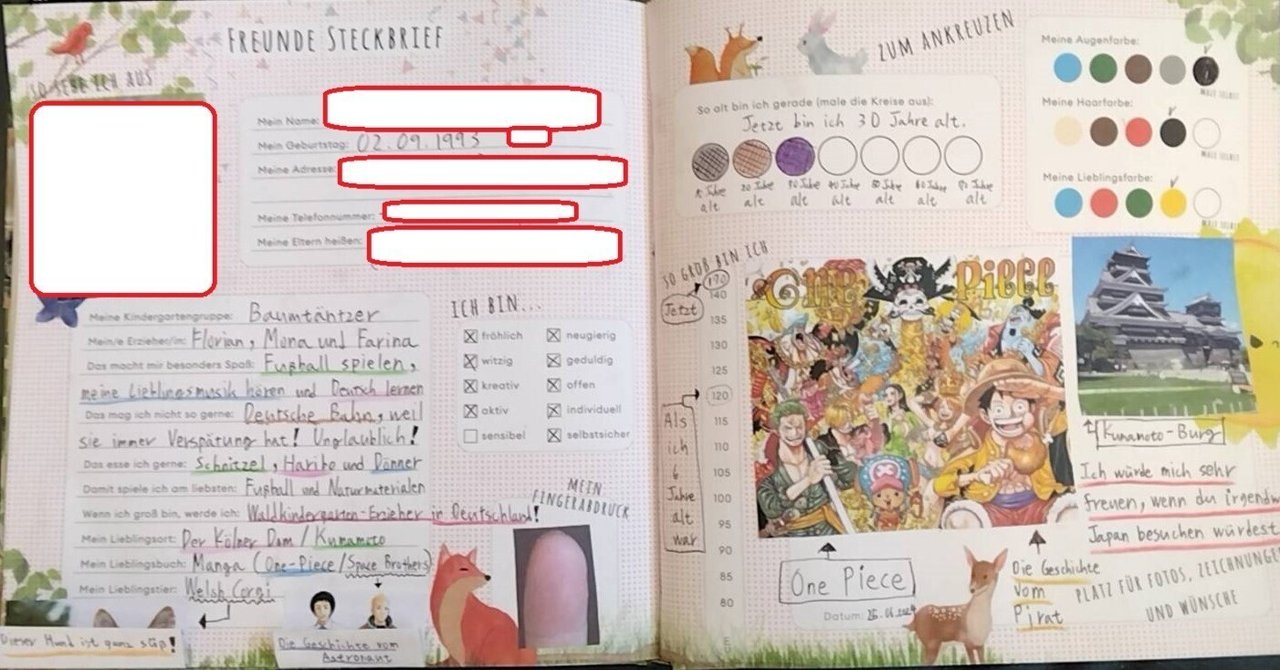 FREUNDE STECKBRIEF
SO SEHE ICH AUS
Mein Name:
Mein Geburtstag: 02.09.1993
Meine Adresse:
Meine Telefonnummer:
Meine Eltern heißen:
Meine Kindergartengruppe: Baumtäntzer
Mein/e Erzieher/in: Florian, Mona und Farina
Das macht mir besonders Spaß: Fußball spielen,
meine Lieblingsmusik hören und Deutsch lernen
Das mag ich nicht so gerne: Deutsche Bahn, weil
sie immer Verspätung hat! Unglaublich!
Das esse ich gerne: Schnitzel, Haribo und Dönner
Damit spiele ich am liebsten: Fußball und Naturmaterialen
Wenn ich groß bin, werde ich: Waldkindergarten-Erzieher in Deutschland!
Mein Lieblingsort: Der Kölner Dom / Kumamoto
Mein Lieblingsbuch: Manga (One-Piece/Space Brothers)
Mein Lieblingstier: Welsh Corgi
Dieser Hund ist ganz süß!
Die Geschichte vom
Astronaut
ICH BIN...
fröhlich neugierig
witzig geduldig
kreativ offen
aktiv individuell
sensibel selbstsicher
MEIN
FINGERABDRUCK
ZUM ANKREUZEN
So alt bin ich gerade (male die Kreise aus):
Jetzt bin ich 30 Jahre alt.
10 Jahre 20 Jahre 30 Jahre 40 Jahre 50 Jahre 60 Jahre 70 Jahre
alt alt alt alt alt alt alt
Meine Augenfarbe:
MALE SELBST
Meine Haarfarbe:
MALE SELBST
Meine Lieblingsfarbe:
MALE SELBST
SO GROß BIN ICH
170
Jetzt
140
135
130
125
120
115
110
105
100
95
90
85
80
Als
ich
6
Jahre
alt
war
One Piece
One Piece
Kumamoto-Burg
Ich würde mich sehr
freuen, wenn du irgendw
Japan besuchen würdest
Die Geschichte
vom
Pirat
Datum:
PLATZ FÜR FOTOS, ZEICHNUNGEN
UND WÜNSCHE